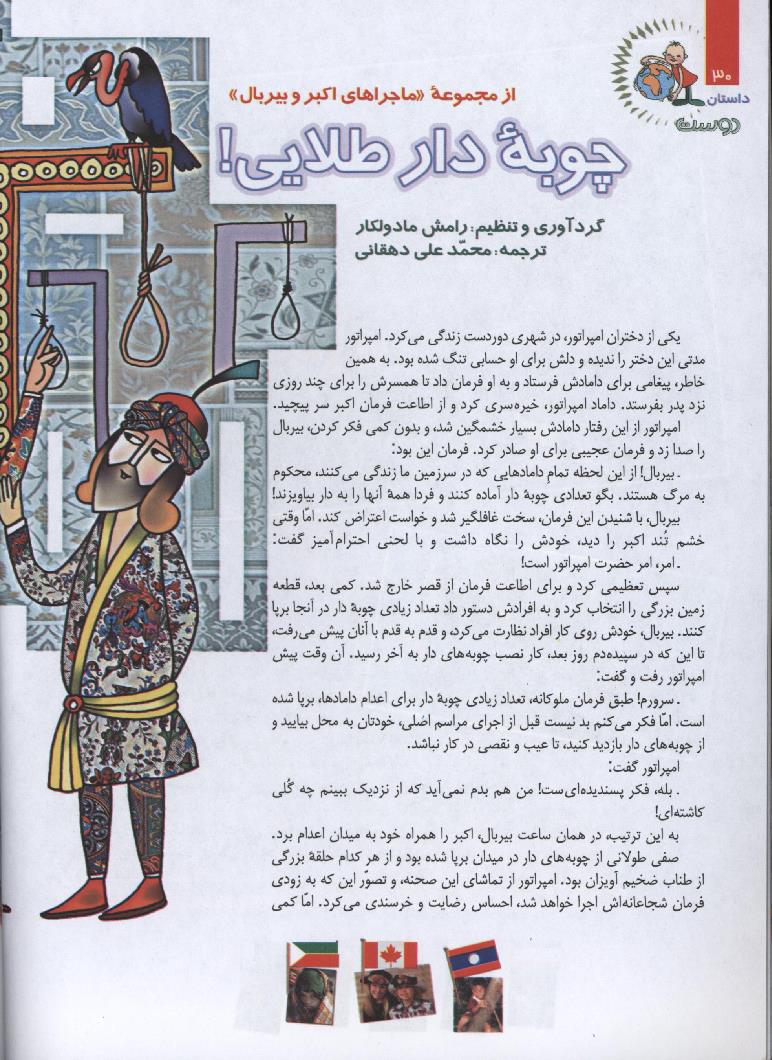 ۳۰
داستان
دوست
از مجموعهٔ «ماجراهای اکبر و بیربال»
چوبهٔ دار طلایی!
گردآوری و تنظیم: رامش مادولکار
ترجمه: محمّد علی دهقانی
یکی از دختران امپراتور، در شهری دوردست زندگی می‌کرد. امپراتور
مدتی این دختر را ندیده و دلش برای او حسابی تنگ شده بود. به همین
خاطر، پیغامی برای دامادش فرستاد و به او فرمان داد تا همسرش را برای چند روزی
نزد پدر بفرستد. داماد امپراتور، خیره‌سری کرد و از اطاعت فرمان اکبر سر پیچید.
امپراتور از این رفتار دامادش بسیار خشمگین شد، و بدون کمی فکر کردن، بیربال
را صدا زد و فرمان عجیبی برای او صادر کرد. فرمان این بود:
. بیربال! از این لحظه تمامِ دامادهایی که در سرزمین ما زندگی می‌کنند، محکوم
به مرگ هستند. بگو تعدادی چوبهٔ دار آماده کنند و فردا همهٔ آنها را به دار بیاویزند!
بیربال، با شنیدن این فرمان، سخت غافلگیر شد و خواست اعتراض کند. امّا وقتی
خشم تُند اکبر را دید، خودش را نگاه داشت و با لحنی احترام‌آمیز گفت:
. امر، امر حضرت امپراتور است!
سپس تعظیمی کرد و برای اطاعت فرمان از قصر خارج شد. کمی بعد، قطعه
زمین بزرگی را انتخاب کرد و به افرادش دستور داد تعداد زیادی چوبهٔ دار در آنجا برپا
کنند. بیربال، خودش روی کار افراد نظارت می‌کرد، و قدم به قدم با آنان پیش می‌رفت،
تا این که در سپیده‌دم روز بعد، کار نصب چوبه‌های دار به آخر رسید. آن وقت پیش
امپراتور رفت و گفت:
. سرورم! طبق فرمان ملوکانه، تعداد زیادی چوبهٔ دار برای اعدام دامادها، برپا شده
است. امّا فکر می‌کنم بد نیست قبل از اجرای مراسم اصلی، خودتان به محل بیایید و
از چوبه‌های دار بازدید کنید، تا عیب و نقصی در کار نباشد.
امپراتور گفت:
. بله، فکر پسندیده‌ای‌ست! من هم بدم نمی‌آید که از نزدیک ببینم چه گُلی
کاشته‌ای!
به این ترتیب، در همان ساعت بیربال، اکبر را همراه خود به میدان اعدام برد.
صفی طولانی از چوبه‌های دار در میدان برپا شده بود و از هر کدام حلقهٔ بزرگی
از طناب ضخیم آویزان بود. امپراتور از تماشای این صحنه، و تصوّر این که به زودی
فرمان شجاعانه‌اش اجرا خواهد شد، احساس رضایت و خرسندی می‌کرد. امّا کمی